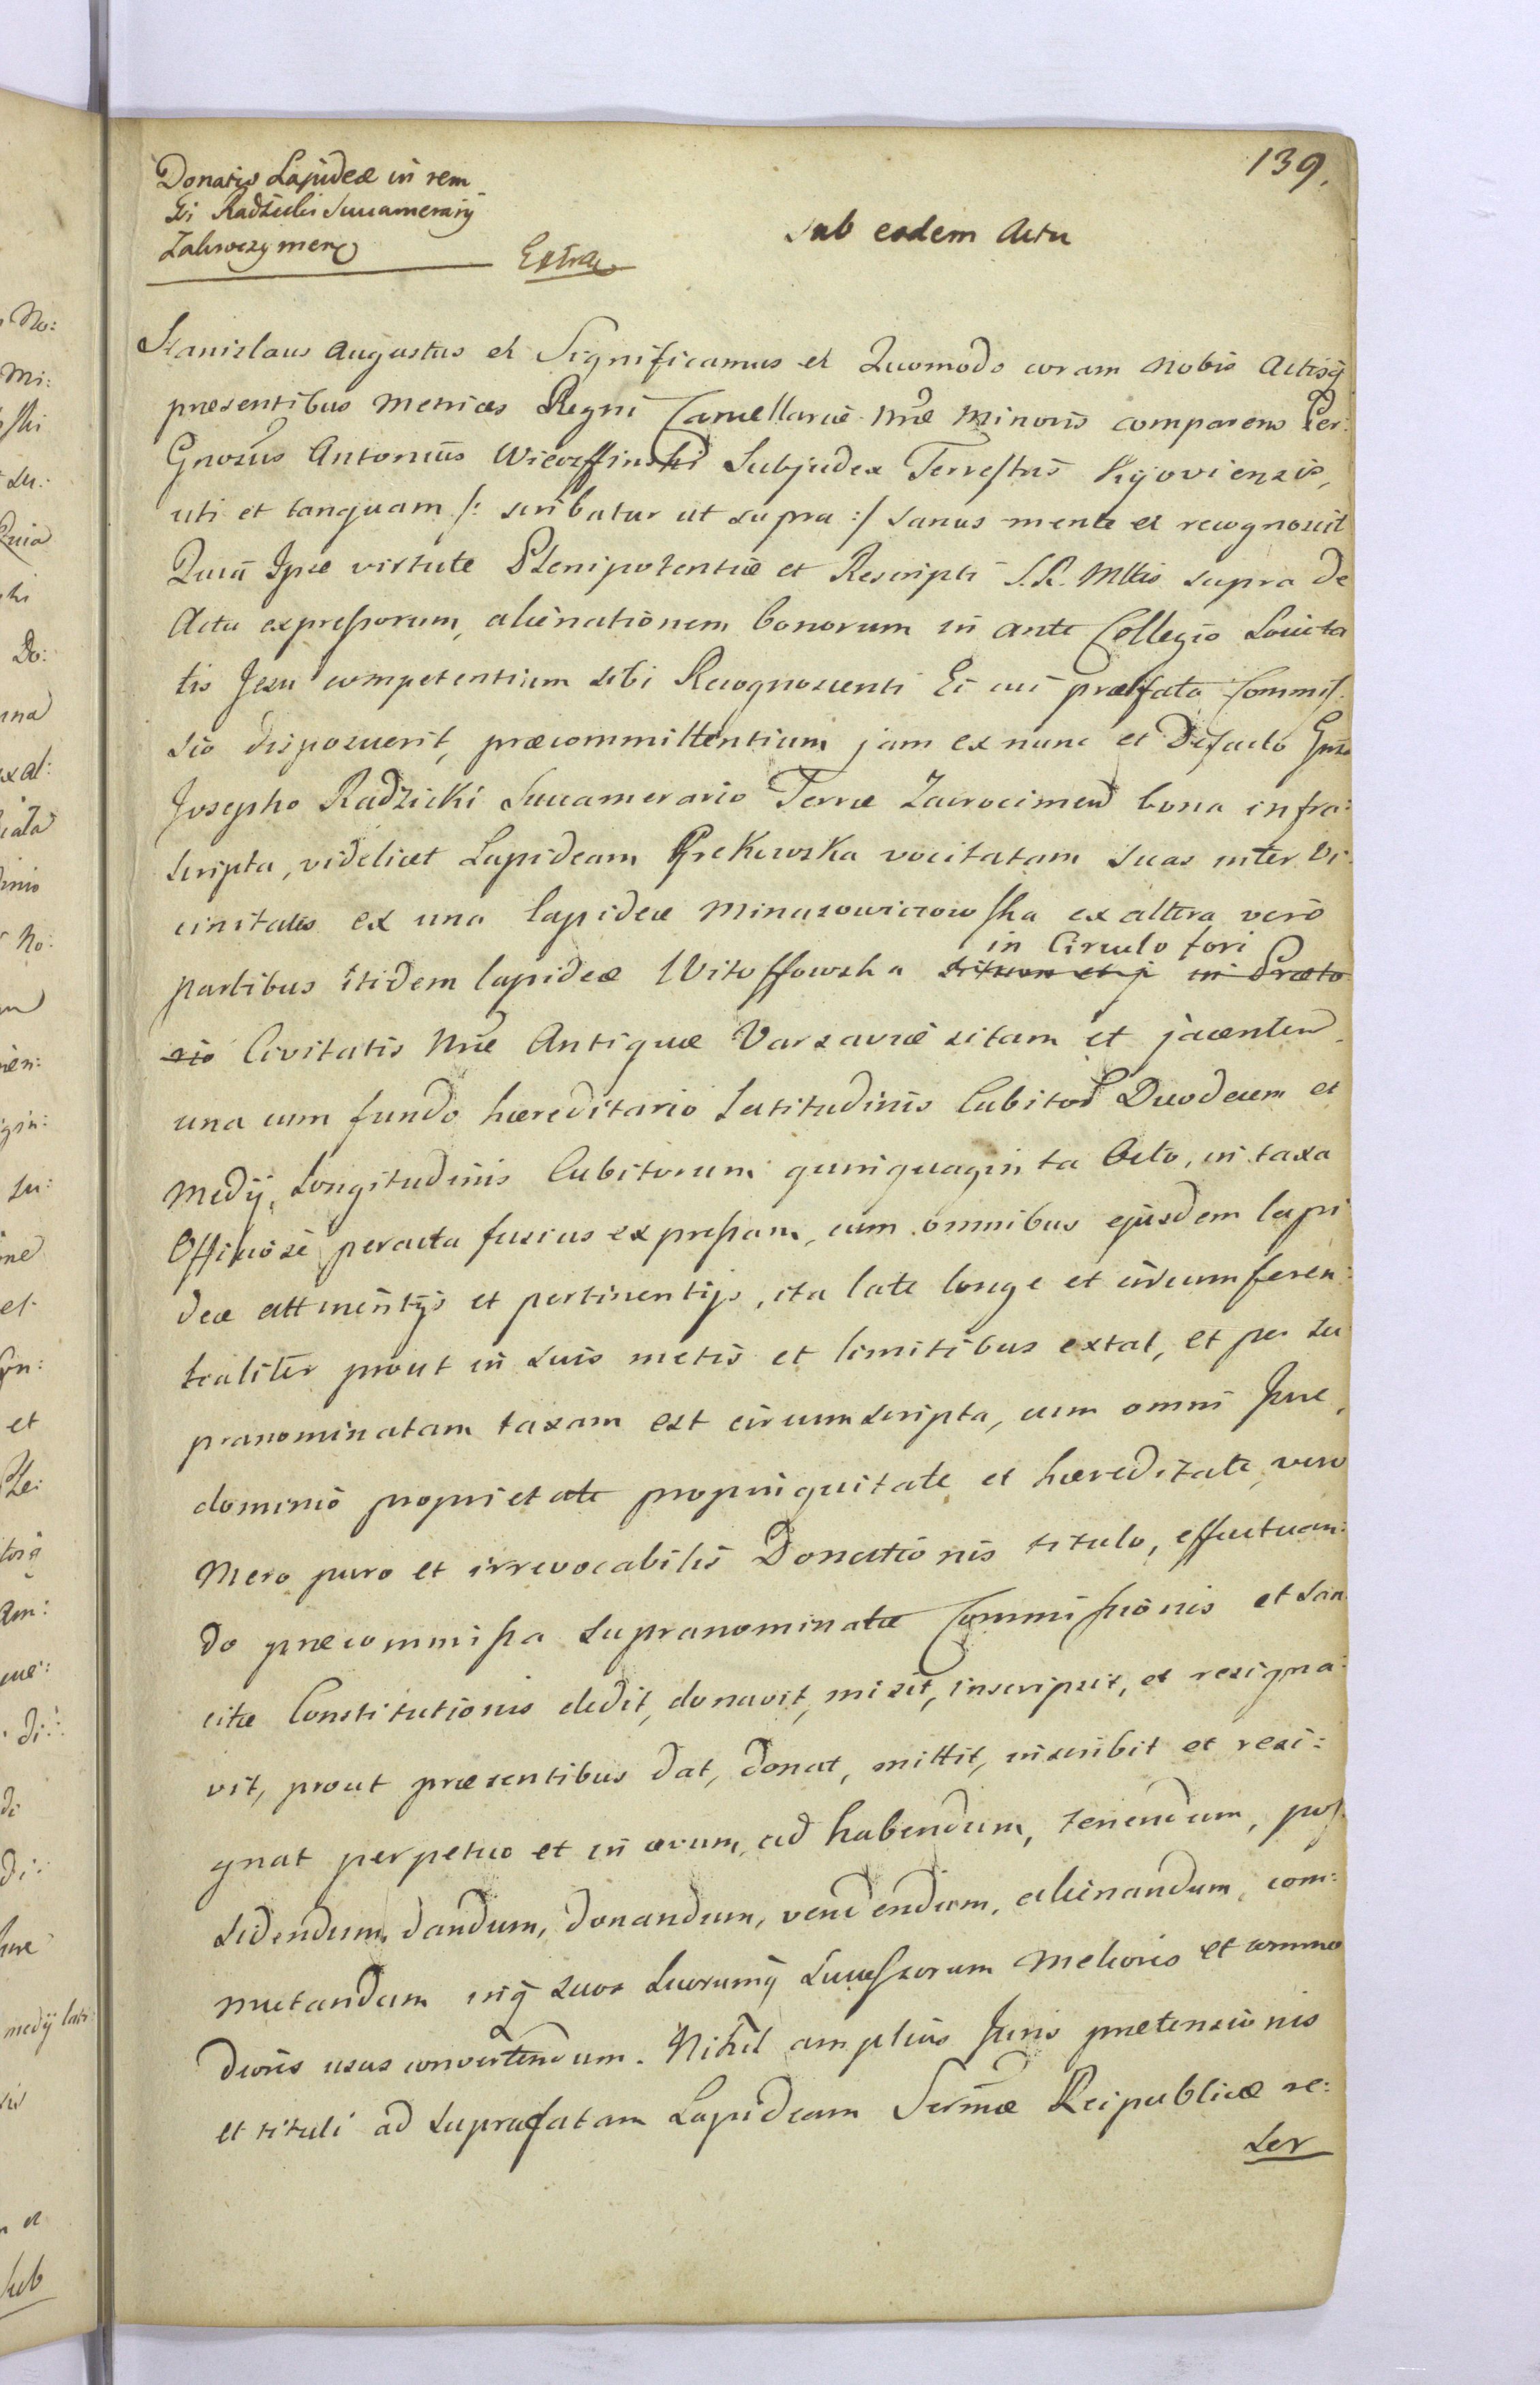 139.
Donatio Lapideæ in rem
Gi Radzicki Succamerarij
Zakroczymen
Extra
Sub eodem Actu
Stanislaus Augustus et Significamus et Quomodo coram nobis Actisq̃
præsentibus Metrices Regni Cancellariæ Nr̃æ Minoris comparens Per:
Gnosus Antonius Wierzffinski Subjudex Terrestris Kijoviensis,
uti et tanquam /: scribatur ut supra :/ sanus mente et recognovit
Quia Ipse virtute Plenipotentiæ et Rescripti S.R. Mttis supra de
Actu expressorum, alienationem bonorum in ante Collegio Societa
tis Jesu competentium sibi Recognoscenti Ei cui præfata Commis
sio disposuerit, præcommittentium jam ex nunc et Defacto Gnso
Josepho Radzicki Succamerario Terræ Zacrocimen bona infra:
scripta, videlicet Lapideam Grekowska vocitatam suas inter Vi
cinitates ex una lapideæ Minasowiczowska ex altera vero
in Circulo fori
partibus itidem lapideæ Witoffowska sitam et j in Præto
rio Civitatis Nr̃æ Antiquæ Varsaviæ sitam et jacenten
una cum fundo hæreditario Latitudinis Cubitor Duodecem et
Medij, Longitudinis Cubitorum quinquaginta Octo, in taxa
Officiose peracta fusius expressam, cum omnibus ejusdem lapi
deæ attinentijs et pertinentijs, ita late longe et circumferen:
tialiter prout in suis metis et limitibus extat, et per su
pranominatam taxam est circumscripta, cum omni Jure,
dominio proprietate propinquitate et hæreditate, vero
Mero puro et irrevocabilis Donationis titulo, effectuan:
do præcommissa supranominatæ Commissionis et San
citæ Constitutionis dedit, donavit, misit, inscripsit, et resigna:
vit, prout præsentibus dat, donat, mittit, inscribit et resi:
gnat perpetuo et in ævum, ad habendum, tenendum, pos
sidendum, dandum, donandum, vendendum, alienandum, com:
mutandum inq̃ suos suorumq̃ Successorum Melioris et commo
dioris usus convertendum. Nihil amplius Juris prætensionis
et tituli ad supra fatam Lapideam Sermæ Reipublicæ re:
ser